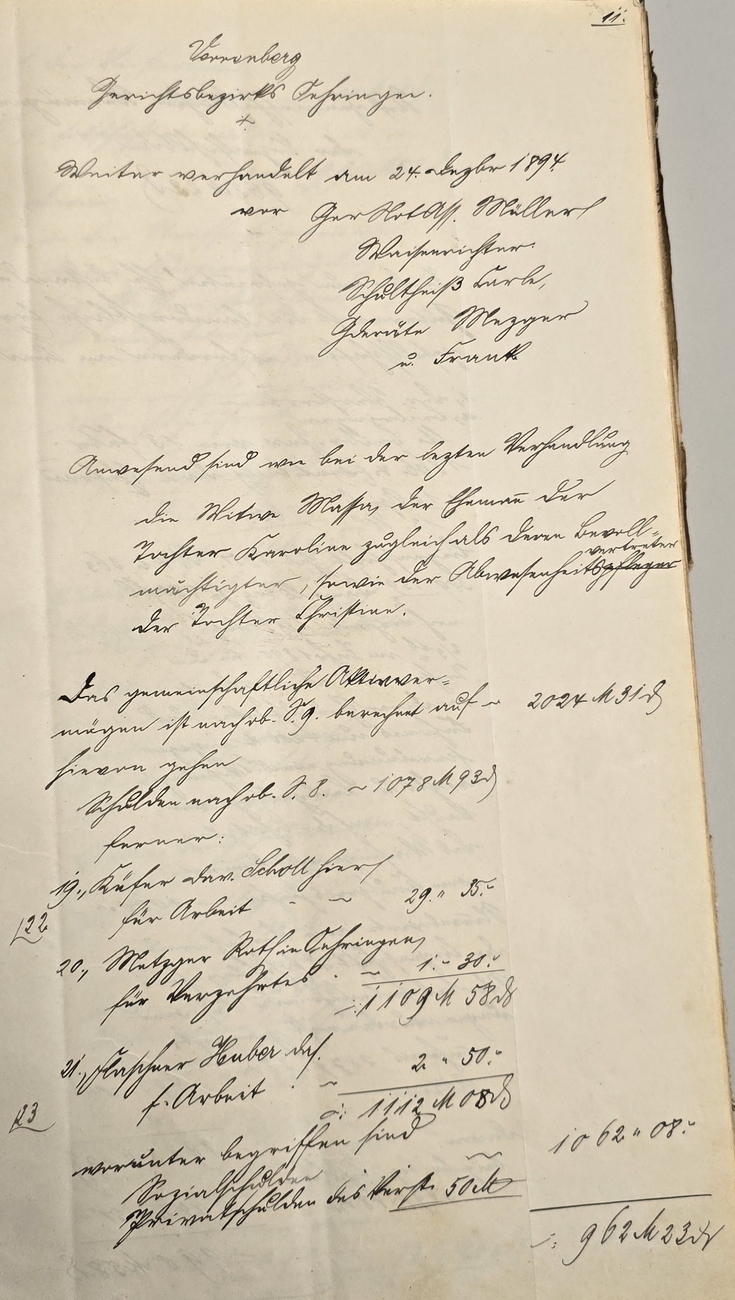 11.
Verrenberg
Gerichtsbezirks Oehringen.
Weiter verhandelt am 24. Dezbr 1894.
vor GerNotAss. Müller
Waisenrichter:
Schultheiß Carle,
Gderäte Mezger
u. Frank.
Anwesend sind wie bei der lezten Verhandlung
die Witwe Massa, der Ehemann der
Tochter Karoline zugleich als deren Bevoll-
mächtigter, sowie der Abwesenheitspfleger vertreter
der Tochter Christine.
Das gemeinschaftliche Aktivver-
mögen ist nach ob. S. 9. berechnet auf ~ 2024 M 31 d
hievon gehen
Schulden nach ob. S. 8. ~ 1078 M 93 d
ferner:
19., Küfer Dav. Scholl hier
für Arbeit - ~ 29. " 35."
122
20., Metzger Roth in Oehringen,
für Verzehrtes - ~ 1. " 30."
: 1109 M 58 d
21., Flaschner Huber das.
f. Arbeit - ~ 2. " 50."
: 1112 M 08 d
123
worunter begriffen sind
Sozialschulden ~ 1062 " 08."
Privatschulden des Verst. 50 M
: 962 M 23 d